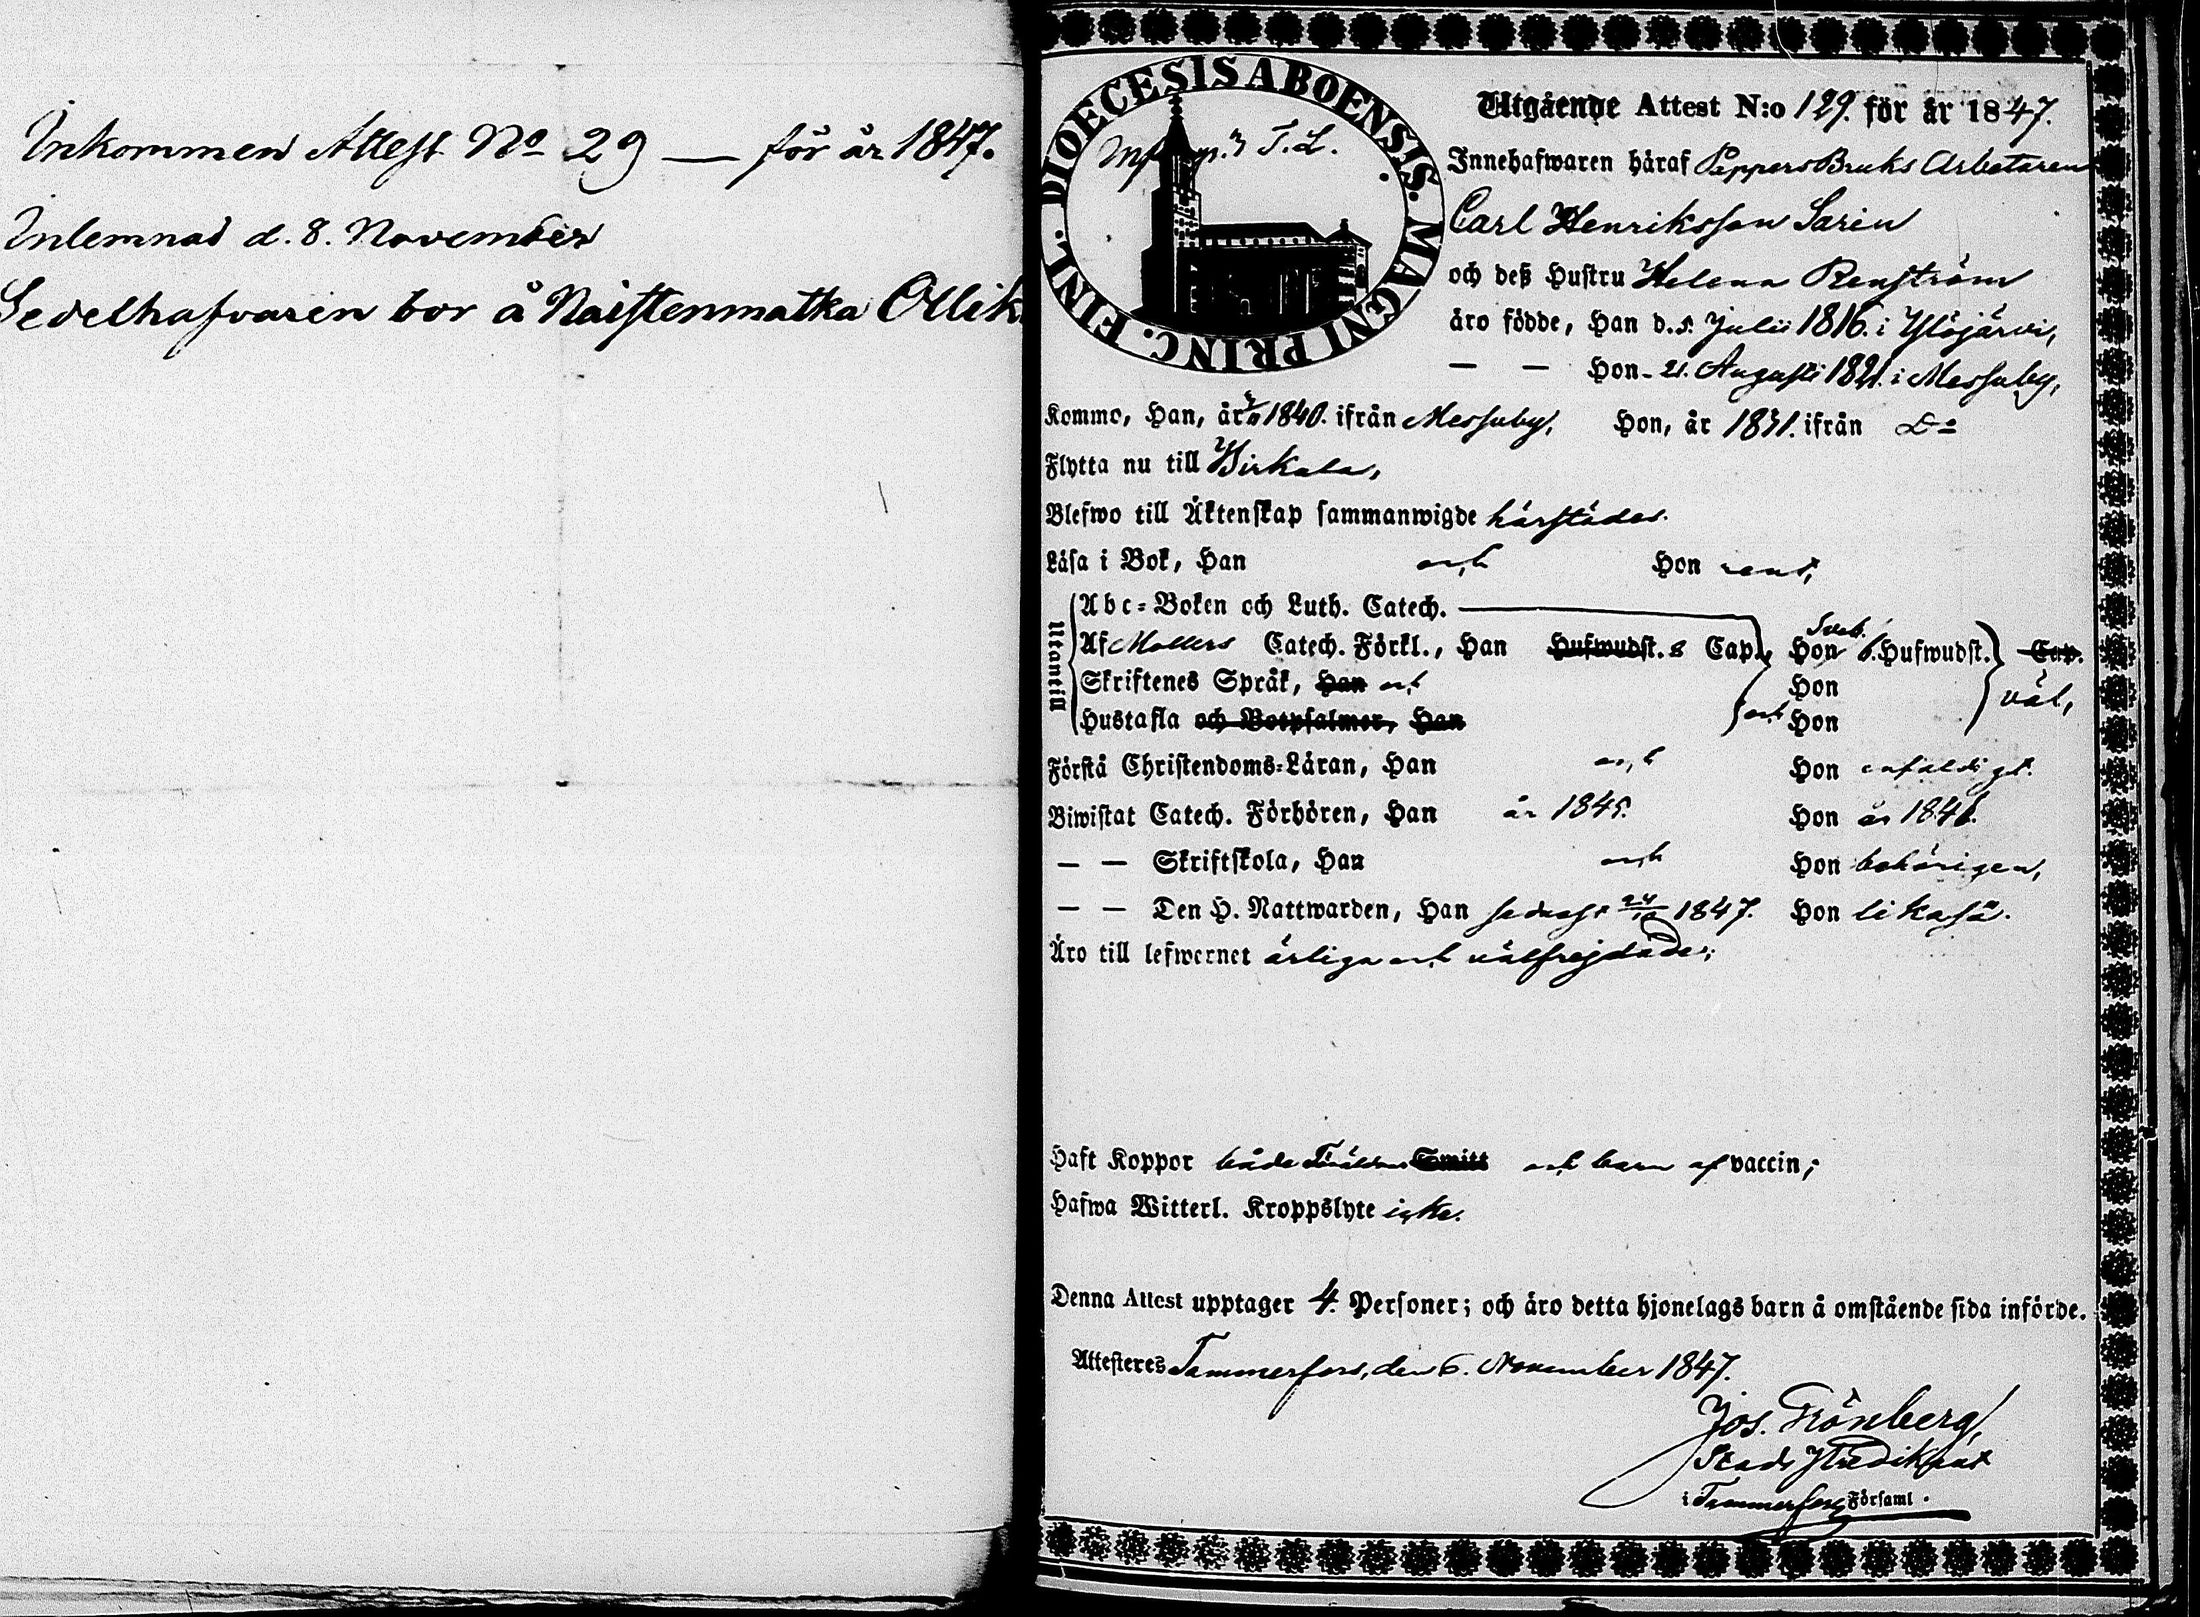 Inkommen Attest No 29 — för år 1847.
Inlemnad d. 8. November
Sedelhafvaren bor å Naistenmatka Ollik
DIOECESIS ABOENSIS. MAGNI PRINC. FINL.
T. L.
Utgående Attest N:o 129. för år 1847.
Innehafwaren häraf Pappers Bruks Arbetaren
Carl Henriksson Sarin
och deß Hustru Helena Renström
äro födde, Han d. 5. Julii 1816. i Ylöjärvi,
— — Hon - 21. Augusti 1821. i Messuby,
Kommo, Han, år 1840. ifrån Messuby, Hon, år 1831. ifrån Do
Flytta nu till Birkala,
Blefwo till Äktenskap sammanwigde härstädes.
Läsa i Bok, Han och Hon rent,
Utantill
Abc-Boken och Luth. Catech.
Af Möllers Catech. Förkl., Han Hufwudst. 8 Cap., Hon Sveb. 6. Hufwudst. Cap.
Skriftenes Språk, Han och Hon väl,
Hustafla och Botpsalmer, Han och Hon
Förstå Christendoms-Läran, Han och Hon enfaldigt.
Biwistat Catech. Förhören, Han år 1845. Hon år 1846.
— — Skriftskola, Han och Hon behörigen,
— — Den H. Nattwarden, Han sednast 24/10 1847. Hon likaså.
Äro till lefwernet ärliga och välfrejdade;
Haft Koppor både Föräldrar Smitt och barn af vaccin;
Hafwa Witterl. Kroppslyte icke.
Denna Attest upptager 4. Personer; och äro detta hjonelags barn å omstående sida införde.
Attesteres Tammerfors, den 6. November 1847.
Jos. Grönberg,
Stads Predikant
i Tammerfors Församl.